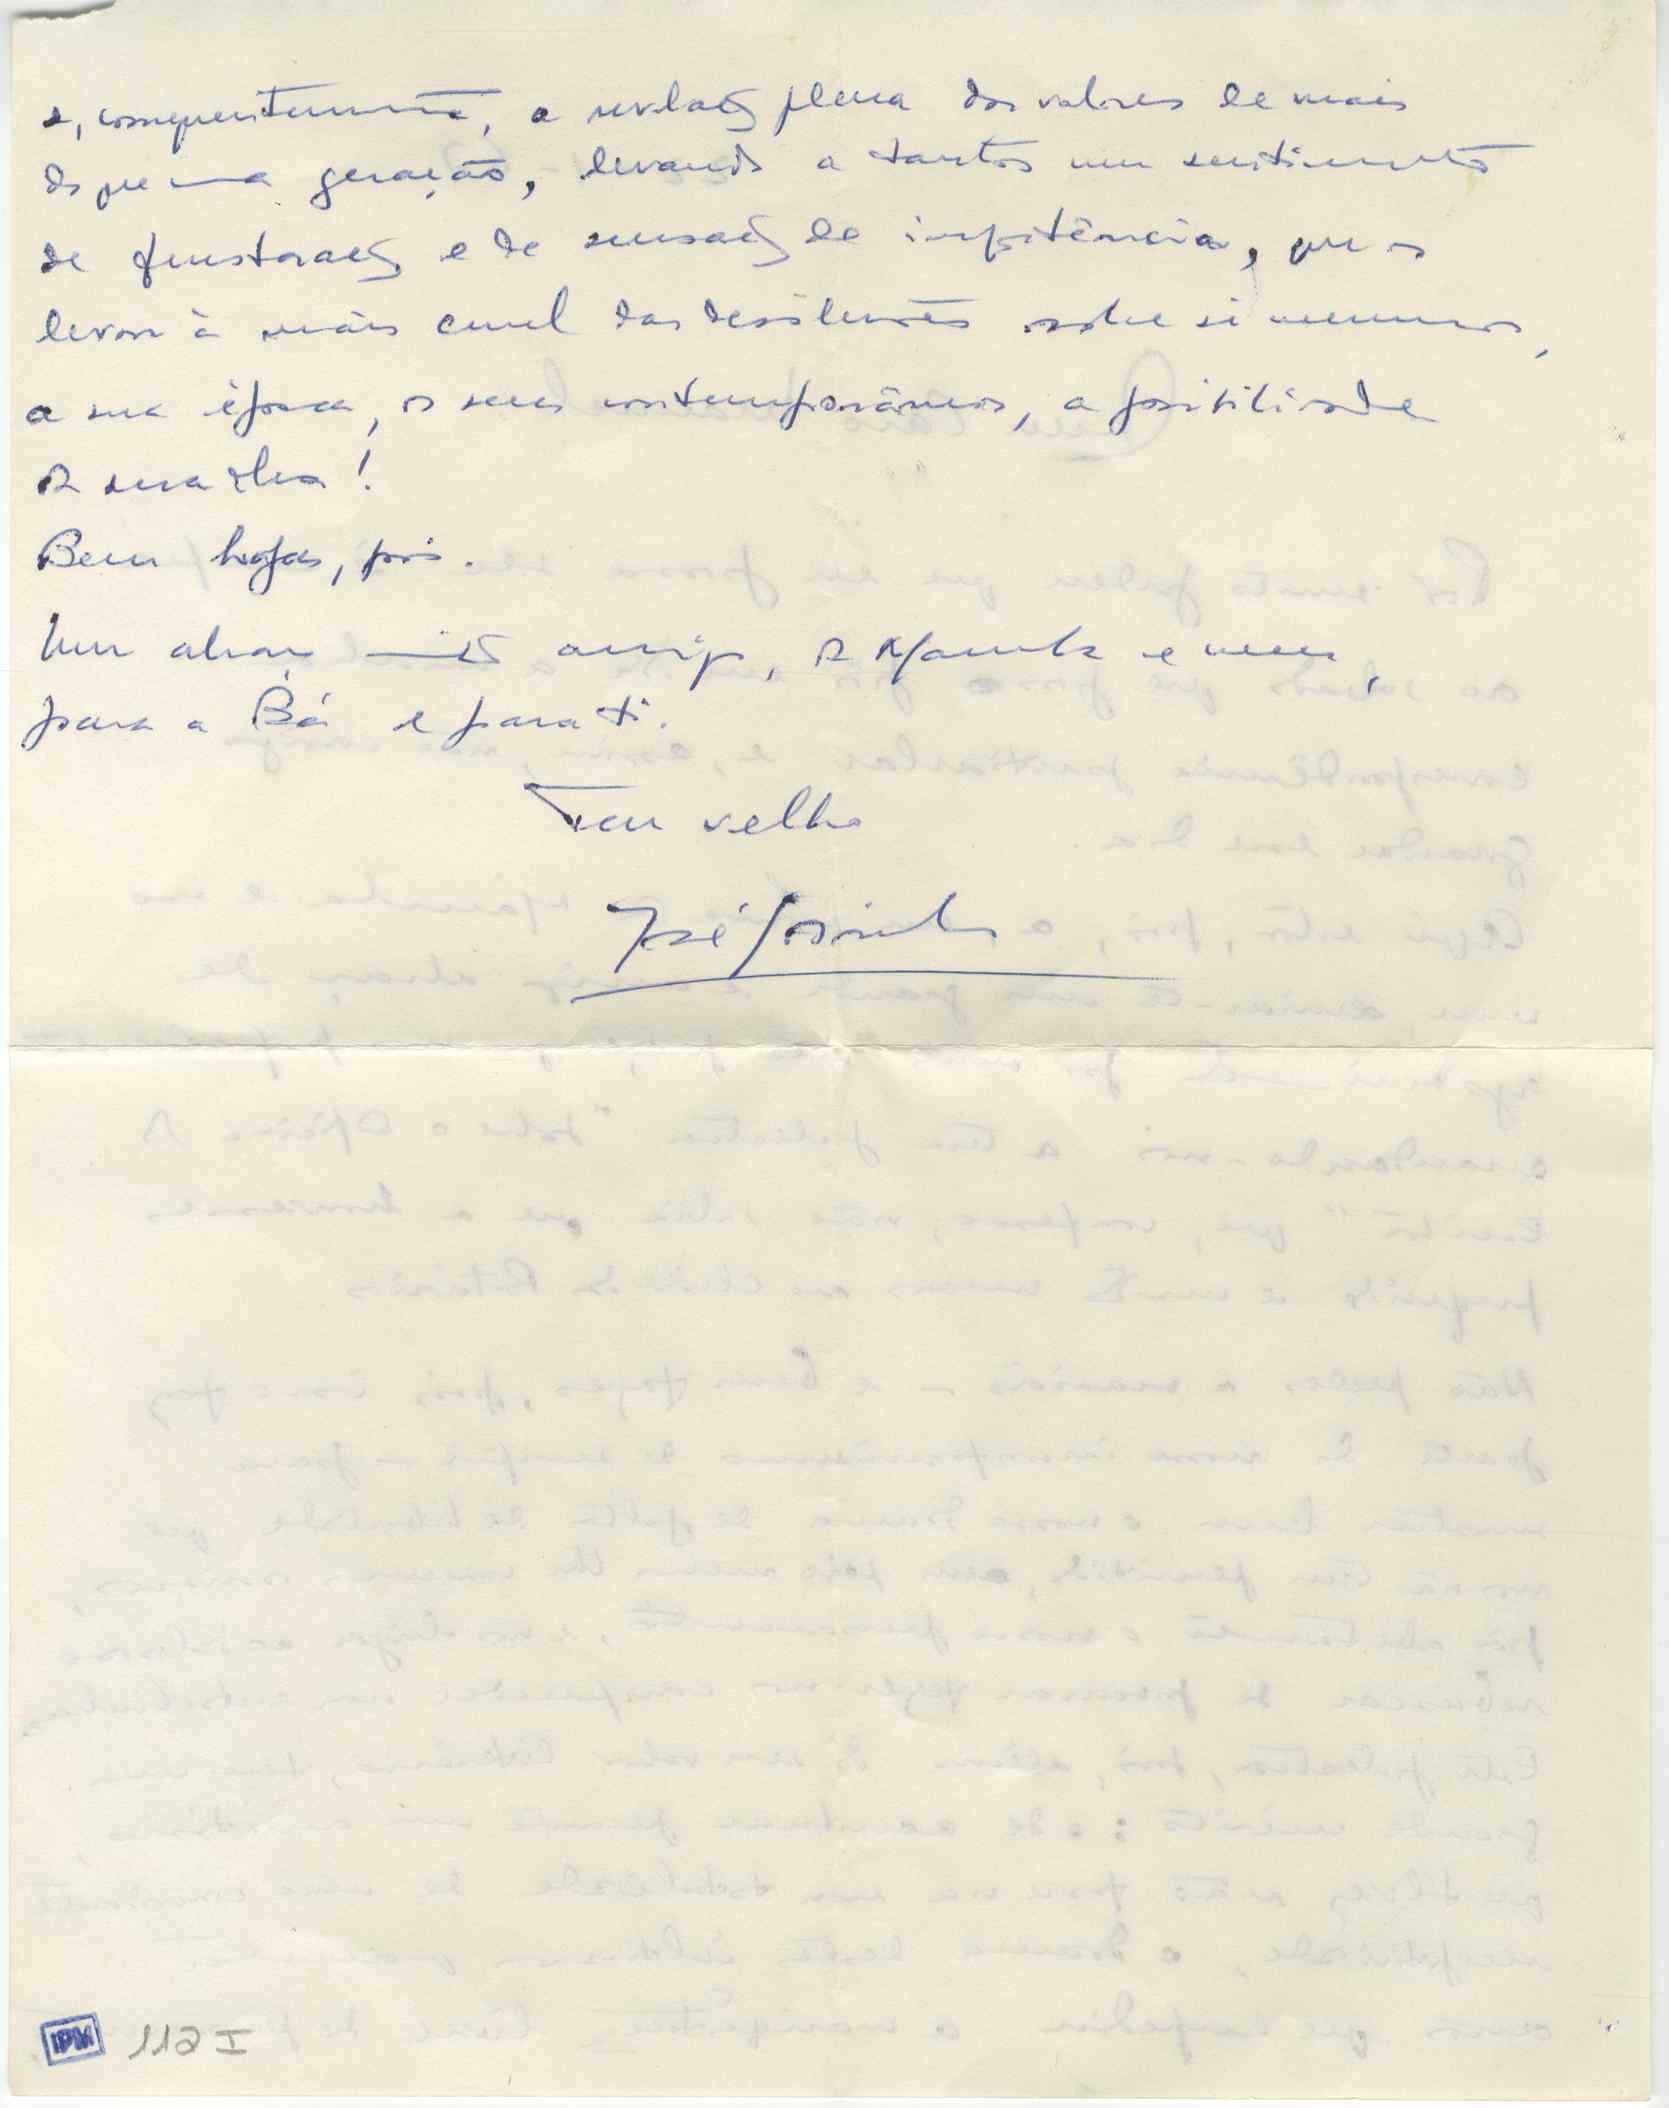 e, consequentemente, a revelação plena dos valores de mais
do que uma geração, levando a tantos um sentimento
de frustração e de sensação de impotência, que os
levou à mais cruel das desilusões sobre si mesmos,
a sua época, os seus contemporâneos, a possibilidade
da sua obra!
Bem hajas, pois.
Um abraço muito amigo, da Manuela e meu,
para a Bá e para ti.
Teu velho
José
IPM 112 I